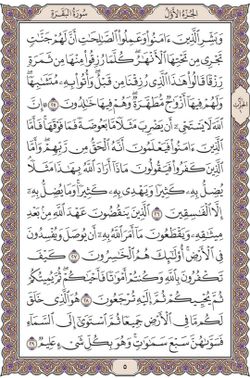 سُورَةُ البَقَرَةِ الجُزْءُ الأَوَّلُ
وَبَشِّرِ ٱلَّذِينَ ءَامَنُوا۟ وَعَمِلُوا۟ ٱلصَّـٰلِحَـٰتِ أَنَّ لَهُمْ جَنَّـٰتٍ
تَجْرِى مِن تَحْتِهَا ٱلْأَنْهَـٰرُ ۖ كُلَّمَا رُزِقُوا۟ مِنْهَا مِن ثَمَرَةٍ
رِّزْقًا ۙ قَالُوا۟ هَـٰذَا ٱلَّذِى رُزِقْنَا مِن قَبْلُ ۖ وَأُتُوا۟ بِهِۦ مُتَشَـٰبِهًا ۖ
وَلَهُمْ فِيهَآ أَزْوَٰجٌ مُّطَهَّرَةٌ ۖ وَهُمْ فِيهَا خَـٰلِدُونَ ٢٥ ۞ إِنَّ
ٱللَّهَ لَا يَسْتَحْىِۦٓ أَن يَضْرِبَ مَثَلًا مَّا بَعُوضَةً فَمَا فَوْقَهَا ۚ فَأَمَّا
ٱلَّذِينَ ءَامَنُوا۟ فَيَعْلَمُونَ أَنَّهُ ٱلْحَقُّ مِن رَّبِّهِمْ ۖ وَأَمَّا
ٱلَّذِينَ كَفَرُوا۟ فَيَقُولُونَ مَاذَآ أَرَادَ ٱللَّهُ بِهَـٰذَا مَثَلًا ۘ
يُضِلُّ بِهِۦ كَثِيرًا وَيَهْدِى بِهِۦ كَثِيرًا ۚ وَمَا يُضِلُّ بِهِۦٓ
إِلَّا ٱلْفَـٰسِقِينَ ٢٦ ٱلَّذِينَ يَنقُضُونَ عَهْدَ ٱللَّهِ مِنۢ بَعْدِ
مِيثَـٰقِهِۦ وَيَقْطَعُونَ مَآ أَمَرَ ٱللَّهُ بِهِۦٓ أَن يُوصَلَ وَيُفْسِدُونَ
فِى ٱلْأَرْضِ ۚ أُو۟لَـٰٓئِكَ هُمُ ٱلْخَـٰسِرُونَ ٢٧ كَيْفَ
تَكْفُرُونَ بِٱللَّهِ وَكُنتُمْ أَمْوَٰتًا فَأَحْيَـٰكُمْ ۖ ثُمَّ يُمِيتُكُمْ
ثُمَّ يُحْيِيكُمْ ثُمَّ إِلَيْهِ تُرْجَعُونَ ٢٨ هُوَ ٱلَّذِى خَلَقَ
لَكُم مَّا فِى ٱلْأَرْضِ جَمِيعًا ثُمَّ ٱسْتَوَىٰٓ إِلَى ٱلسَّمَآءِ
فَسَوَّىٰهُنَّ سَبْعَ سَمَـٰوَٰتٍ ۚ وَهُوَ بِكُلِّ شَىْءٍ عَلِيمٌ ٢٩
٥